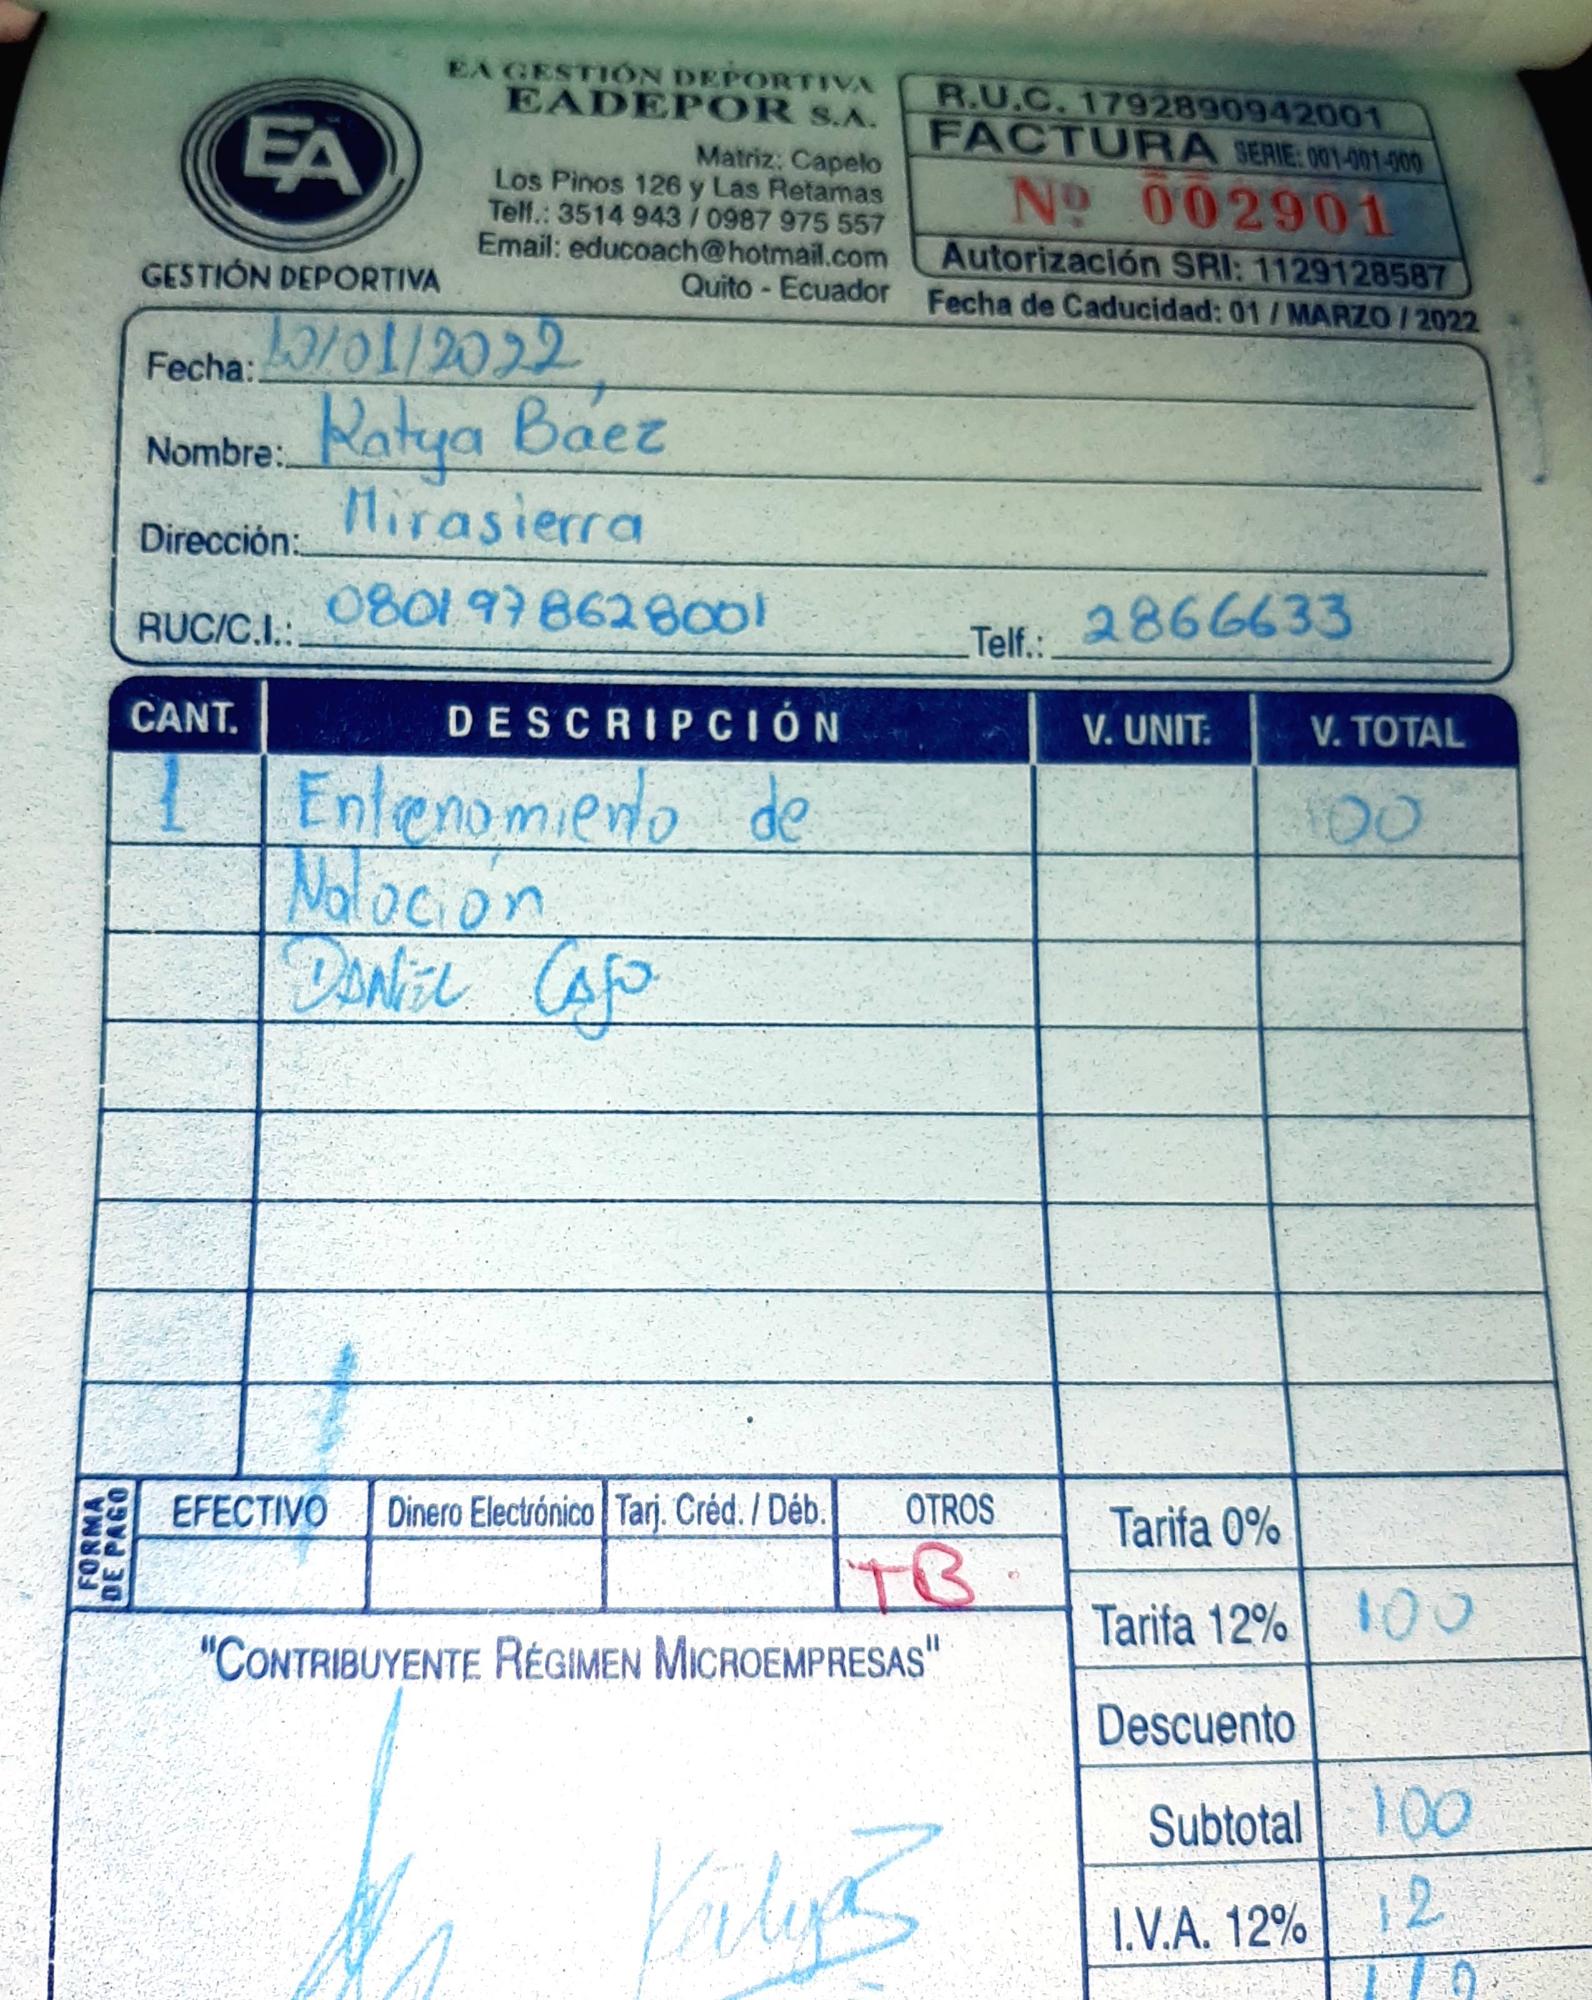 EA GESTIÓN DEPORTIVA
EADEPOR S.A.
EA
GESTIÓN DEPORTIVA
Matriz: Capelo
Los Pinos 126 y Las Retamas
Telf.: 3514 943 / 0987 975 557
Email: educoach@hotmail.com
Quito - Ecuador
R.U.C. 1792890942001
FACTURA SERIE: 001-001-000
Nº 002901
Autorización SRI: 1129128587
Fecha de Caducidad: 01 / MARZO / 2022
Fecha: 10/01/2022
Nombre: Katya Báez
Dirección: Mirasierra
RUC/C.I.: 0801978628001 Telf.: 2866633
CANT. DESCRIPCIÓN V. UNIT. V. TOTAL
1 Entrenamiento de 100
Natación
DANIEL
FORMA DE PAGO
EFECTIVO Dinero Electrónico Tarj. Créd. / Déb. OTROS
TB
Tarifa 0%
Tarifa 12% 100
"CONTRIBUYENTE RÉGIMEN MICROEMPRESAS"
Descuento
Subtotal 100
I.V.A. 12% 12
KatyaB
112